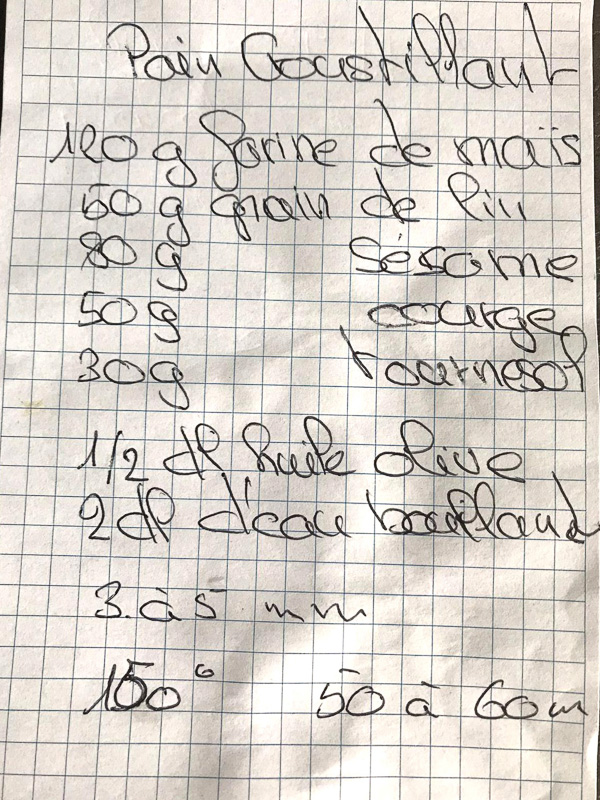 Pain Croustillant
120 g farine de maïs
50 g grain de lin
80 g Sésame
50 g courge
30 g tournesol
1/2 dl huile olive
2 dl d'eau bouillant
3. à 5 mm
150° 50 à 60 m